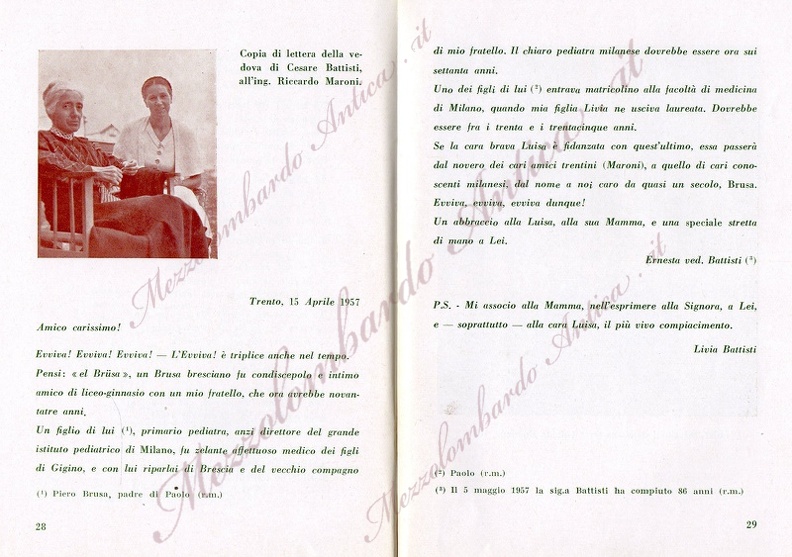 Copia di lettera della ve-
dova di Cesare Battisti,
all'ing. Riccardo Maroni.
Trento, 15 Aprile 1957
Amico carissimo!
Evviva! Evviva! Evviva! — L'Evviva! è triplice anche nel tempo.
Pensi: «el Brüsa», un Brusa bresciano fu condiscepolo e intimo
amico di liceo-ginnasio con un mio fratello, che ora avrebbe novan-
tatre anni.
Un figlio di lui (¹), primario pediatra, anzi direttore del grande
istituto pediatrico di Milano, fu zelante affettuoso medico dei figli
di Gigino, e con lui riparlai di Brescia e del vecchio compagno
(¹) Piero Brusa, padre di Paolo (r.m.)
28
di mio fratello. Il chiaro pediatra milanese dovrebbe essere ora sui
settanta anni.
Uno dei figli di lui (²) entrava matricolino alla facoltà di medicina
di Milano, quando mia figlia Livia ne usciva laureata. Dovrebbe
essere fra i trenta e i trentacinque anni.
Se la cara brava Luisa è fidanzata con quest'ultimo, essa passerà
dal novero dei cari amici trentini (Maroni), a quello di cari cono-
scenti milanesi, dal nome a noi caro da quasi un secolo, Brusa.
Evviva, evviva, evviva dunque!
Un abbraccio alla Luisa, alla sua Mamma, e una speciale stretta
di mano a Lei.
Ernesta ved. Battisti (³)
P.S. - Mi associo alla Mamma, nell'esprimere alla Signora, a Lei,
e — soprattutto — alla cara Luisa, il più vivo compiacimento.
Livia Battisti
(²) Paolo (r.m.)
(³) Il 5 maggio 1957 la sig.a Battisti ha compiuto 86 anni (r.m.)
29
Mezzolombardo Antica . it
Mezzolombardo Antica . it
Mezzolombardo Antica . it